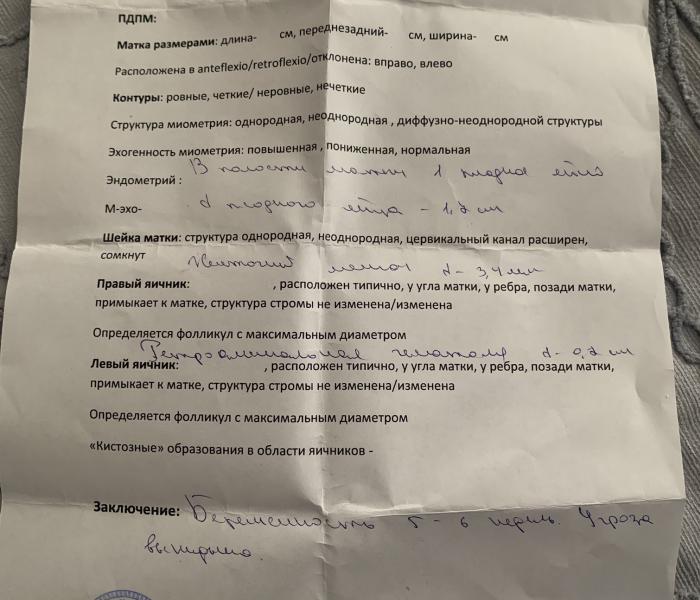 ПДПМ:
Матка размерами: длина- см, переднезадний- см, ширина- см
Расположена в anteflexio/retroflexio/отклонена: вправо, влево
Контуры: ровные, четкие/ неровные, нечеткие
Структура миометрия: однородная, неоднородная , диффузно-неоднородной структуры
Эхогенность миометрия: повышенная , пониженная, нормальная
В полости матки 1 плодное яйцо
Эндометрий :
М-эхо- d плодного яйца - 1,7 см
Шейка матки: структура однородная, неоднородная, цервикальный канал расширен,
сомкнут
Желточный мешок d - 3,4 мм
Правый яичник: , расположен типично, у угла матки, у ребра, позади матки,
примыкает к матке, структура стромы не изменена/изменена
Определяется фолликул с максимальным диаметром
гематома d - 0,7 см
Левый яичник: , расположен типично, у угла матки, у ребра, позади матки,
примыкает к матке, структура стромы не изменена/изменена
Определяется фолликул с максимальным диаметром
«Кистозные» образования в области яичников -
Заключение: Беременность 5 - 6 недель. Угроза
выкидыша.